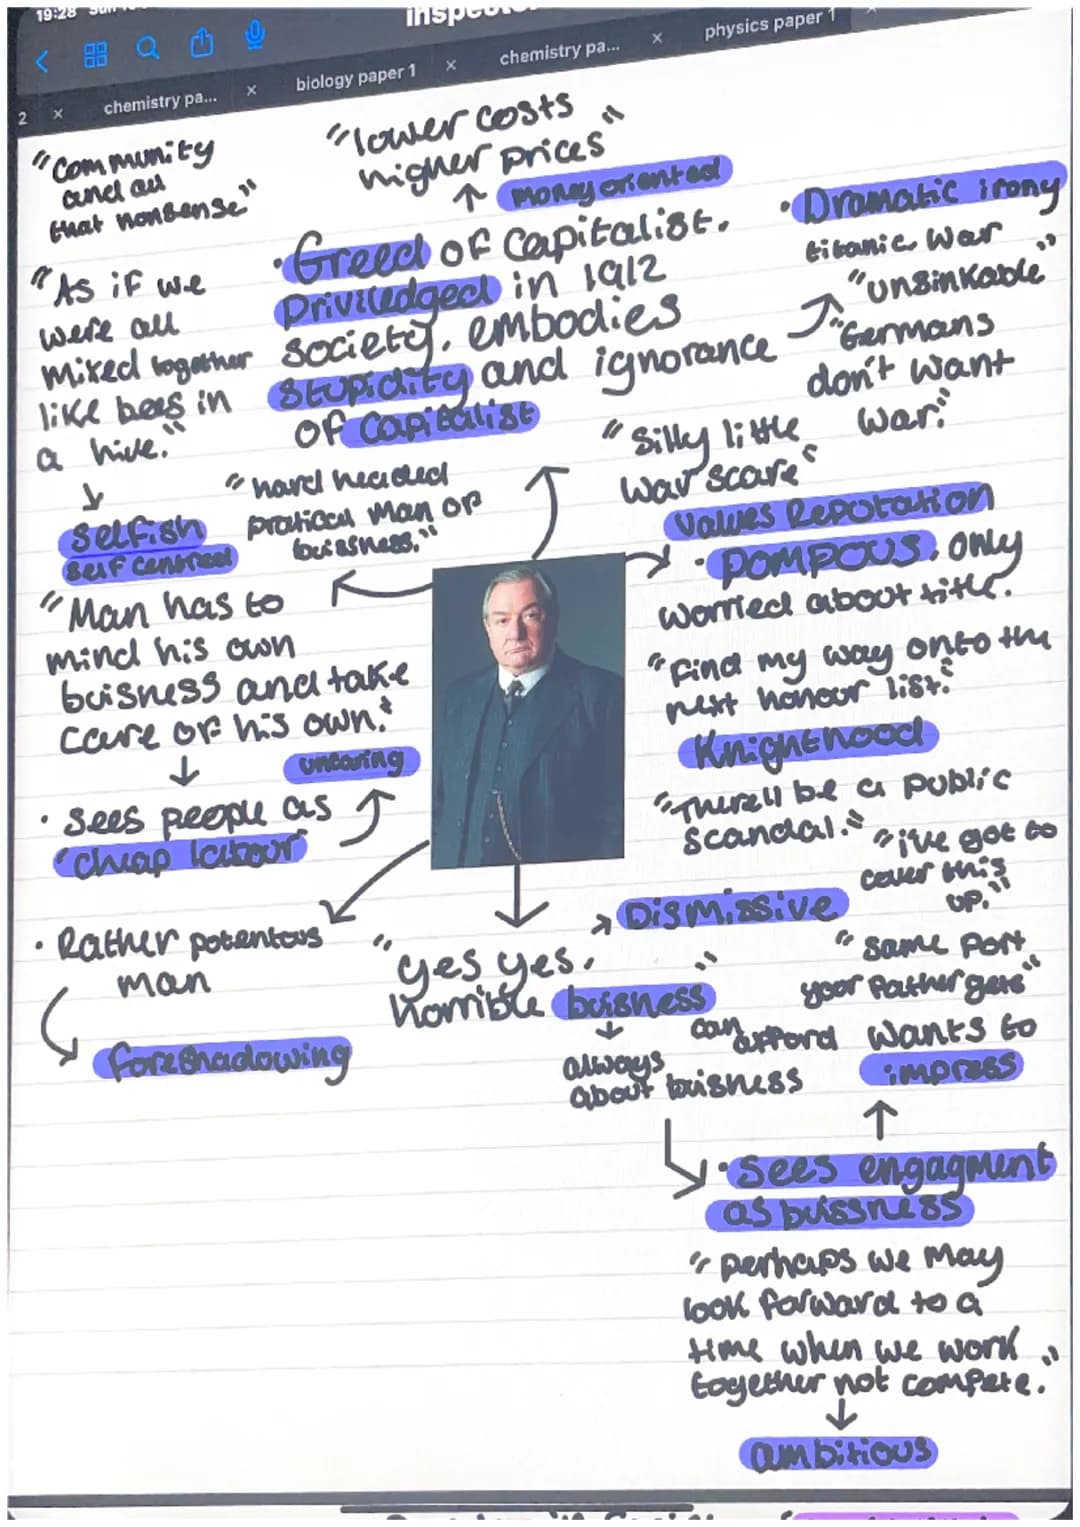 19:28
2 × chemistry pa... × biology paper 1 × chemistry pa... × physics paper 1 ×
"Community
and all
that nonsense"
"lower costs
higher prices"
↑ money oriented
"As if we
were all
mixed together
like bees in
a hive."
↓
Selfish
self centred
· Greed of Capitalist.
Priviledged in 1912
society, embodies
stupidity and ignorance
of capitalist
· Dramatic irony
titanic war
"unsinkable"
"Germans
don't want
war."
"Silly little
war scare"
"hard headed
pratical man of
buissness."
"Man has to
mind his own
buisness and take
care of his own."
↓
uncaring
· Sees people as
"cheap labour"
values Reputation
· POMPOUS. only
worried about title.
"find my way onto the
next honour list."
Knighthood
"There'll be a public
scandal."
"i've got to
cover this
up."
· Rather potentous
man
foreshadowing
"yes yes,
horrible buisness"
→ Dismissive
↓
always
about buisness
"same port
your father gets"
can afford
wants to
impress
↑
· Sees engagment
as buissness
"perhaps we may
look forward to a
time when we work
together not compete."
↓
ambitious